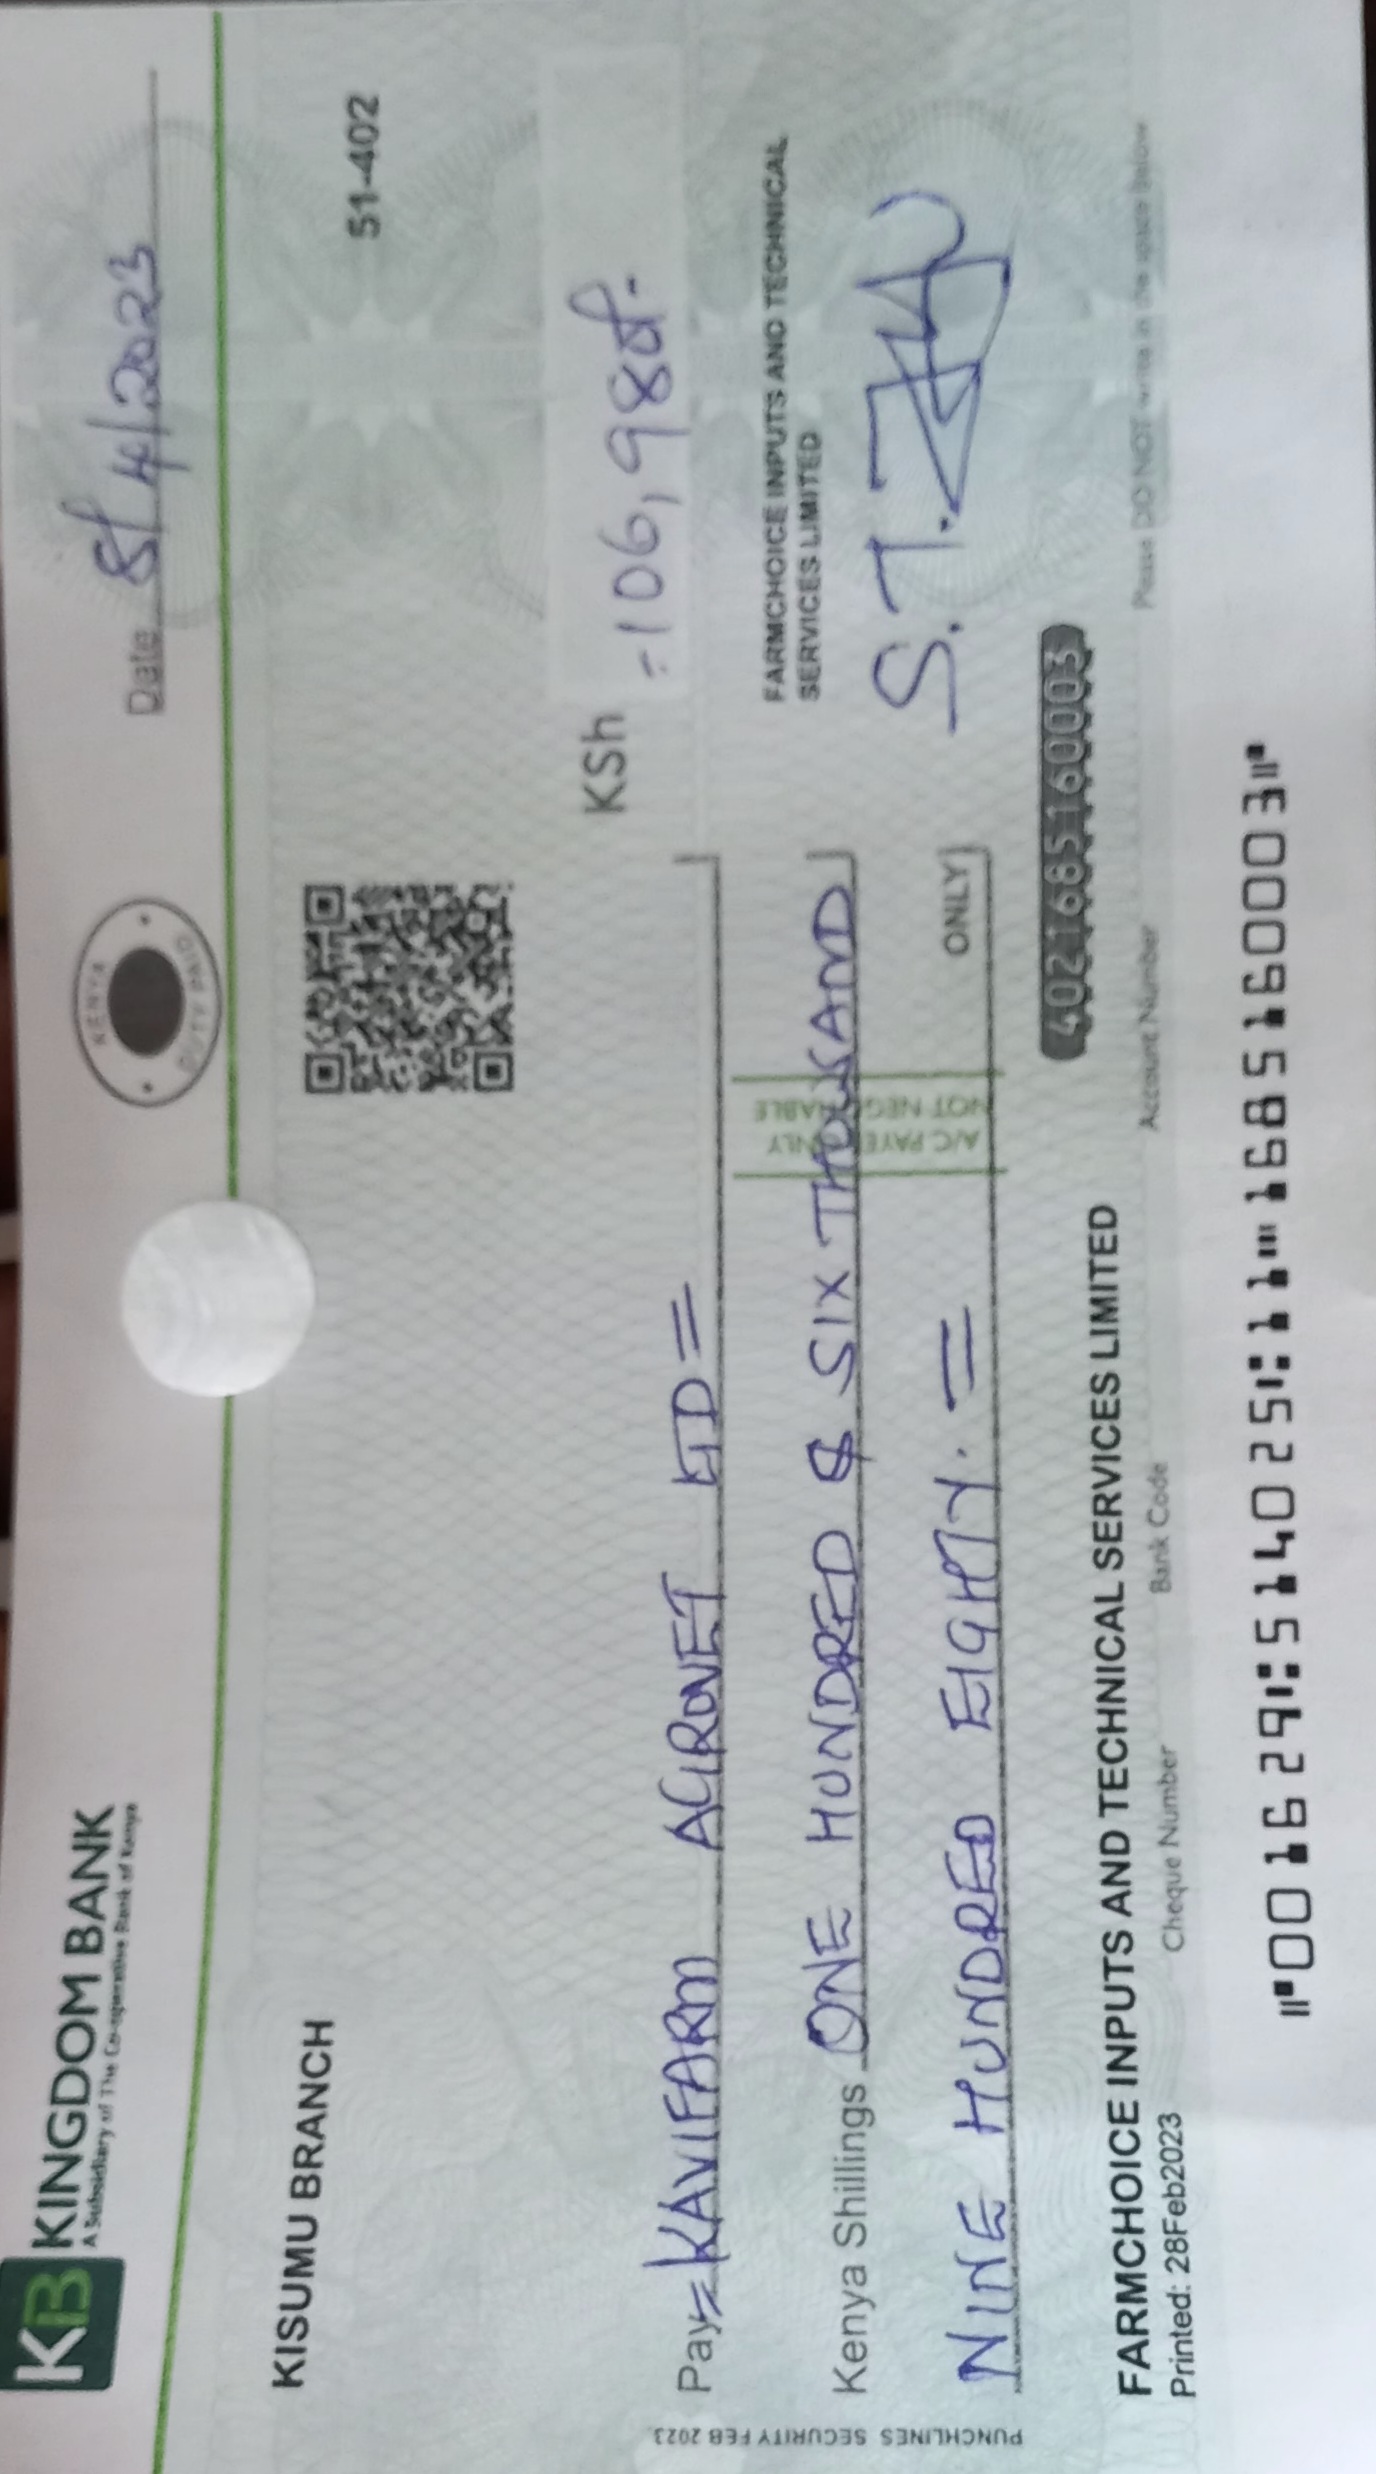 KB KINGDOM BANK
A Subsidiary of The Co-operative Bank of Kenya
KENYA
DUTY PAID
Date 8/4/2023
KISUMU BRANCH
51-402
Pay = KAVIFARM AGRONET LTD =
KSh
=106,980/-
Kenya Shillings ONE HUNDRED & SIX THOUSAND
NINE HUNDRED EIGHTY. =
ONLY
A/C PAYEE ONLY
NOT NEGOTIABLE
FARMCHOICE INPUTS AND TECHNICAL
SERVICES LIMITED
S.T.
4021685160003
FARMCHOICE INPUTS AND TECHNICAL SERVICES LIMITED
Printed: 28Feb2023
Cheque Number
Bank Code
Account Number
Please DO NOT write in the space below
⑈001629⑆514025⑆11⑈1685160003⑈
PUNCHLINES SECURITY FEB 2023